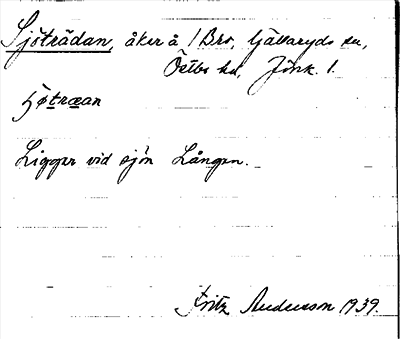 Sjöträdan, åker å 1 Bro, Gällaryds sn,
Östbo hd, Jönk. l.
ʃø̀træan
Ligger vid sjön Lången.
Fritz Andersson 1939.